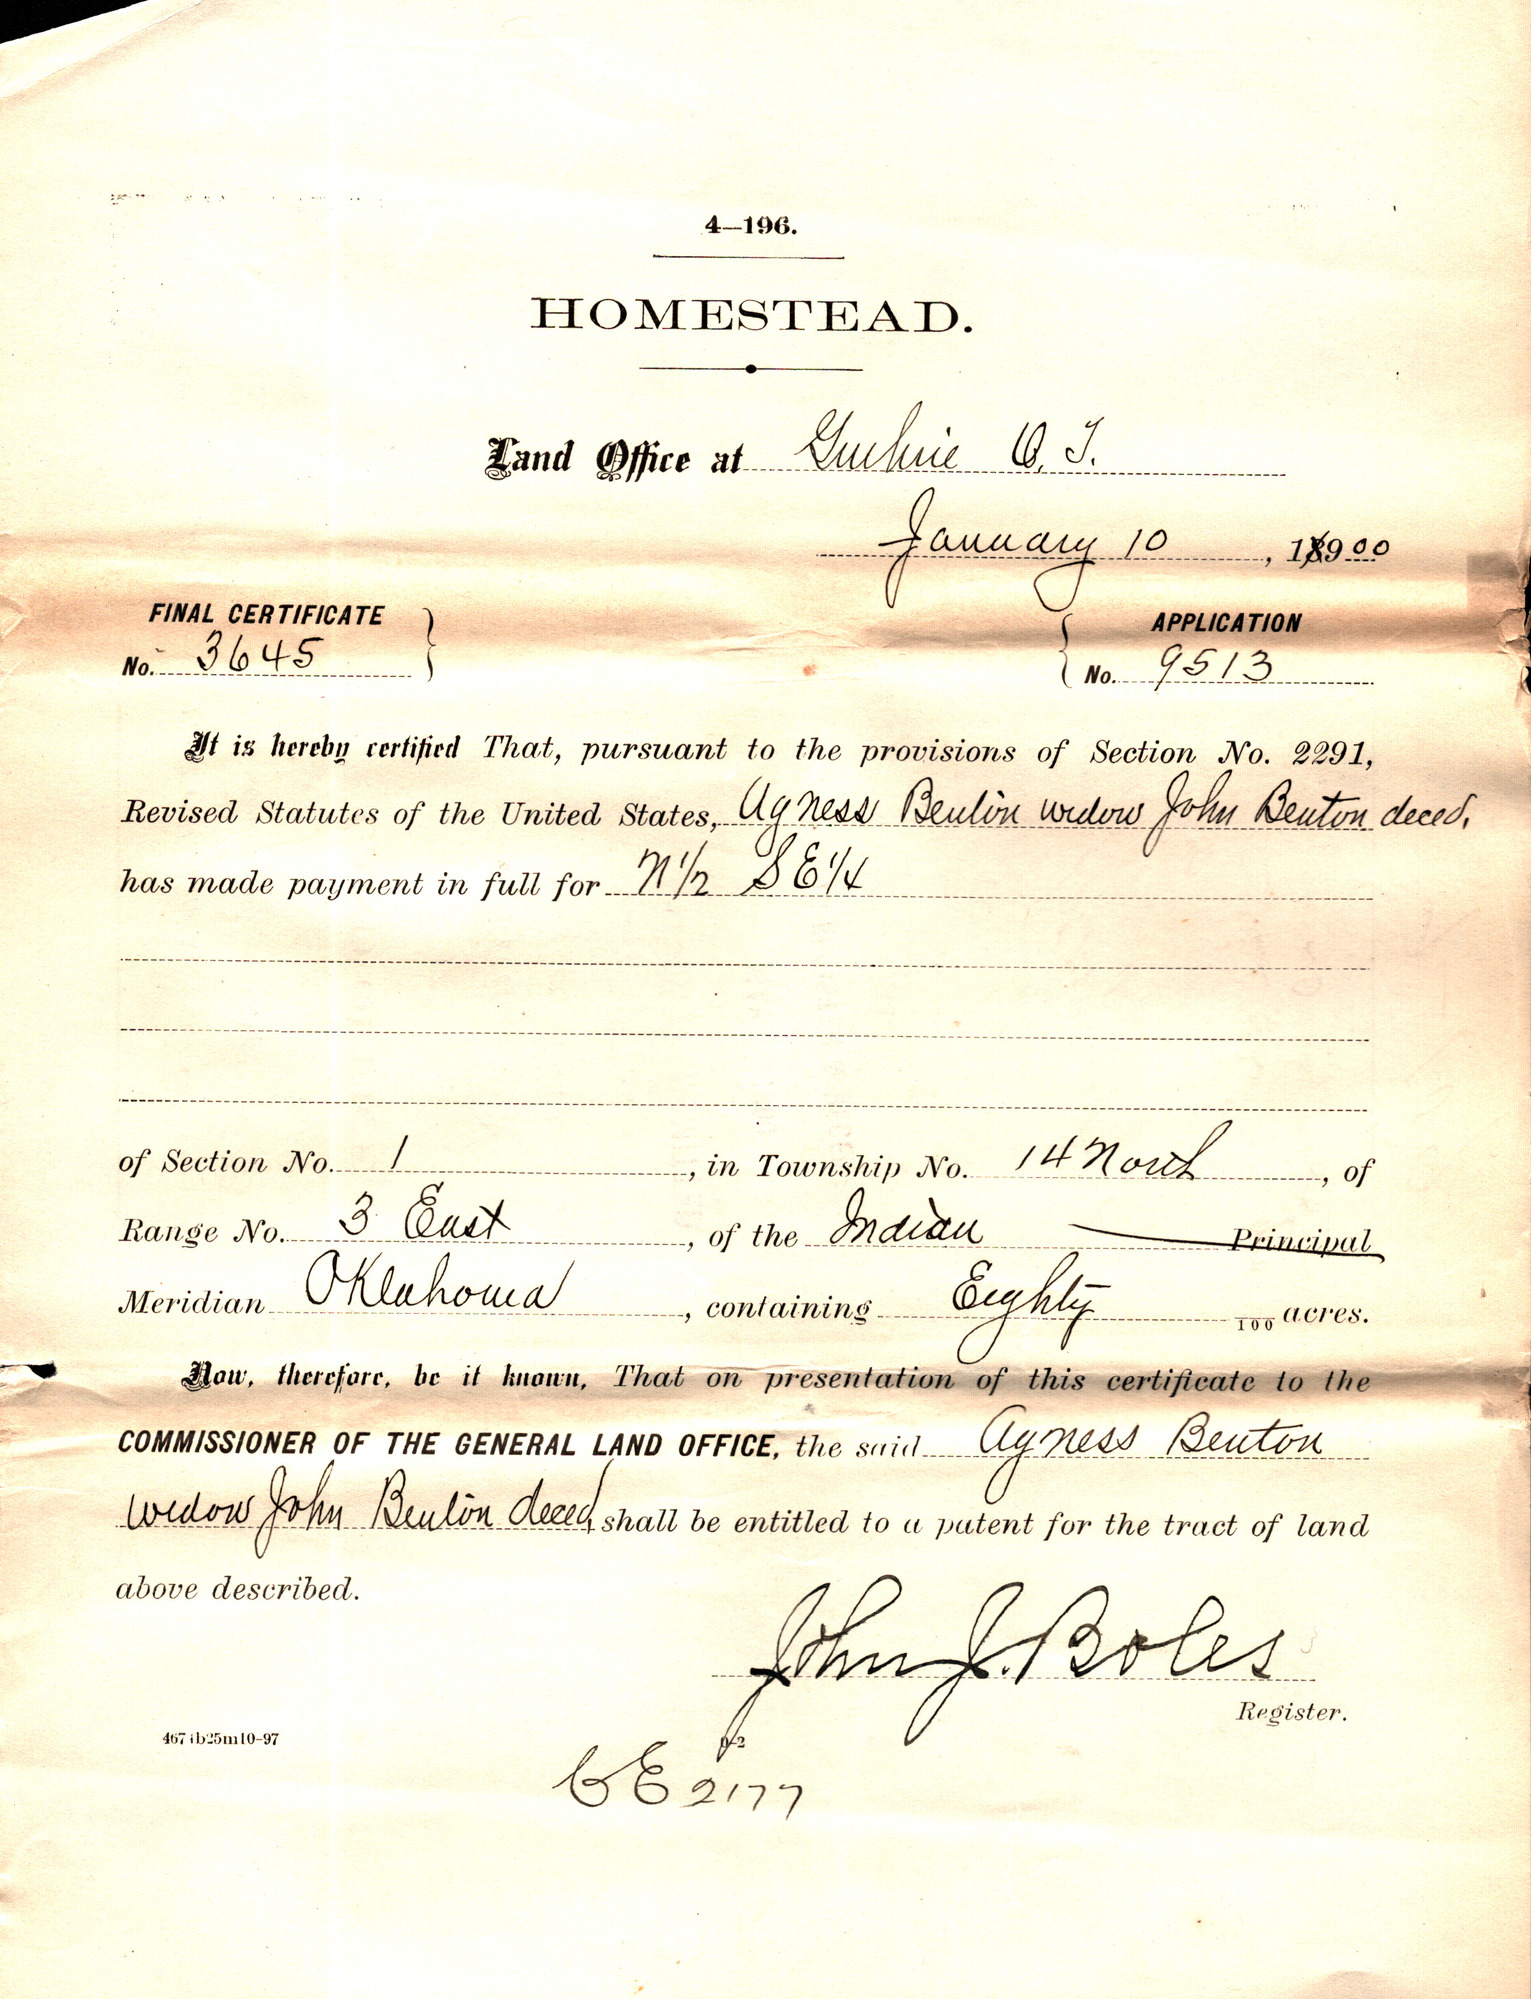 4—196.
HOMESTEAD.
Land Office at Guthrie O. T.
January 10, 1900
FINAL CERTIFICATE
No. 3645
APPLICATION
No. 9513
It is hereby certified That, pursuant to the provisions of Section No. 2291,
Revised Statutes of the United States, Agness Benton widow John Benton deced,
has made payment in full for N 1/2 S E 1/4
of Section No. 1, in Township No. 14 North, of
Range No. 3 East, of the Indian Principal
Meridian Oklahoma, containing Eighty 100 acres.
Now, therefore, be it known, That on presentation of this certificate to the
COMMISSIONER OF THE GENERAL LAND OFFICE, the said Agness Benton
widow John Benton deced, shall be entitled to a patent for the tract of land
above described.
John J. Boles
Register.
4674b25m10-97
2177